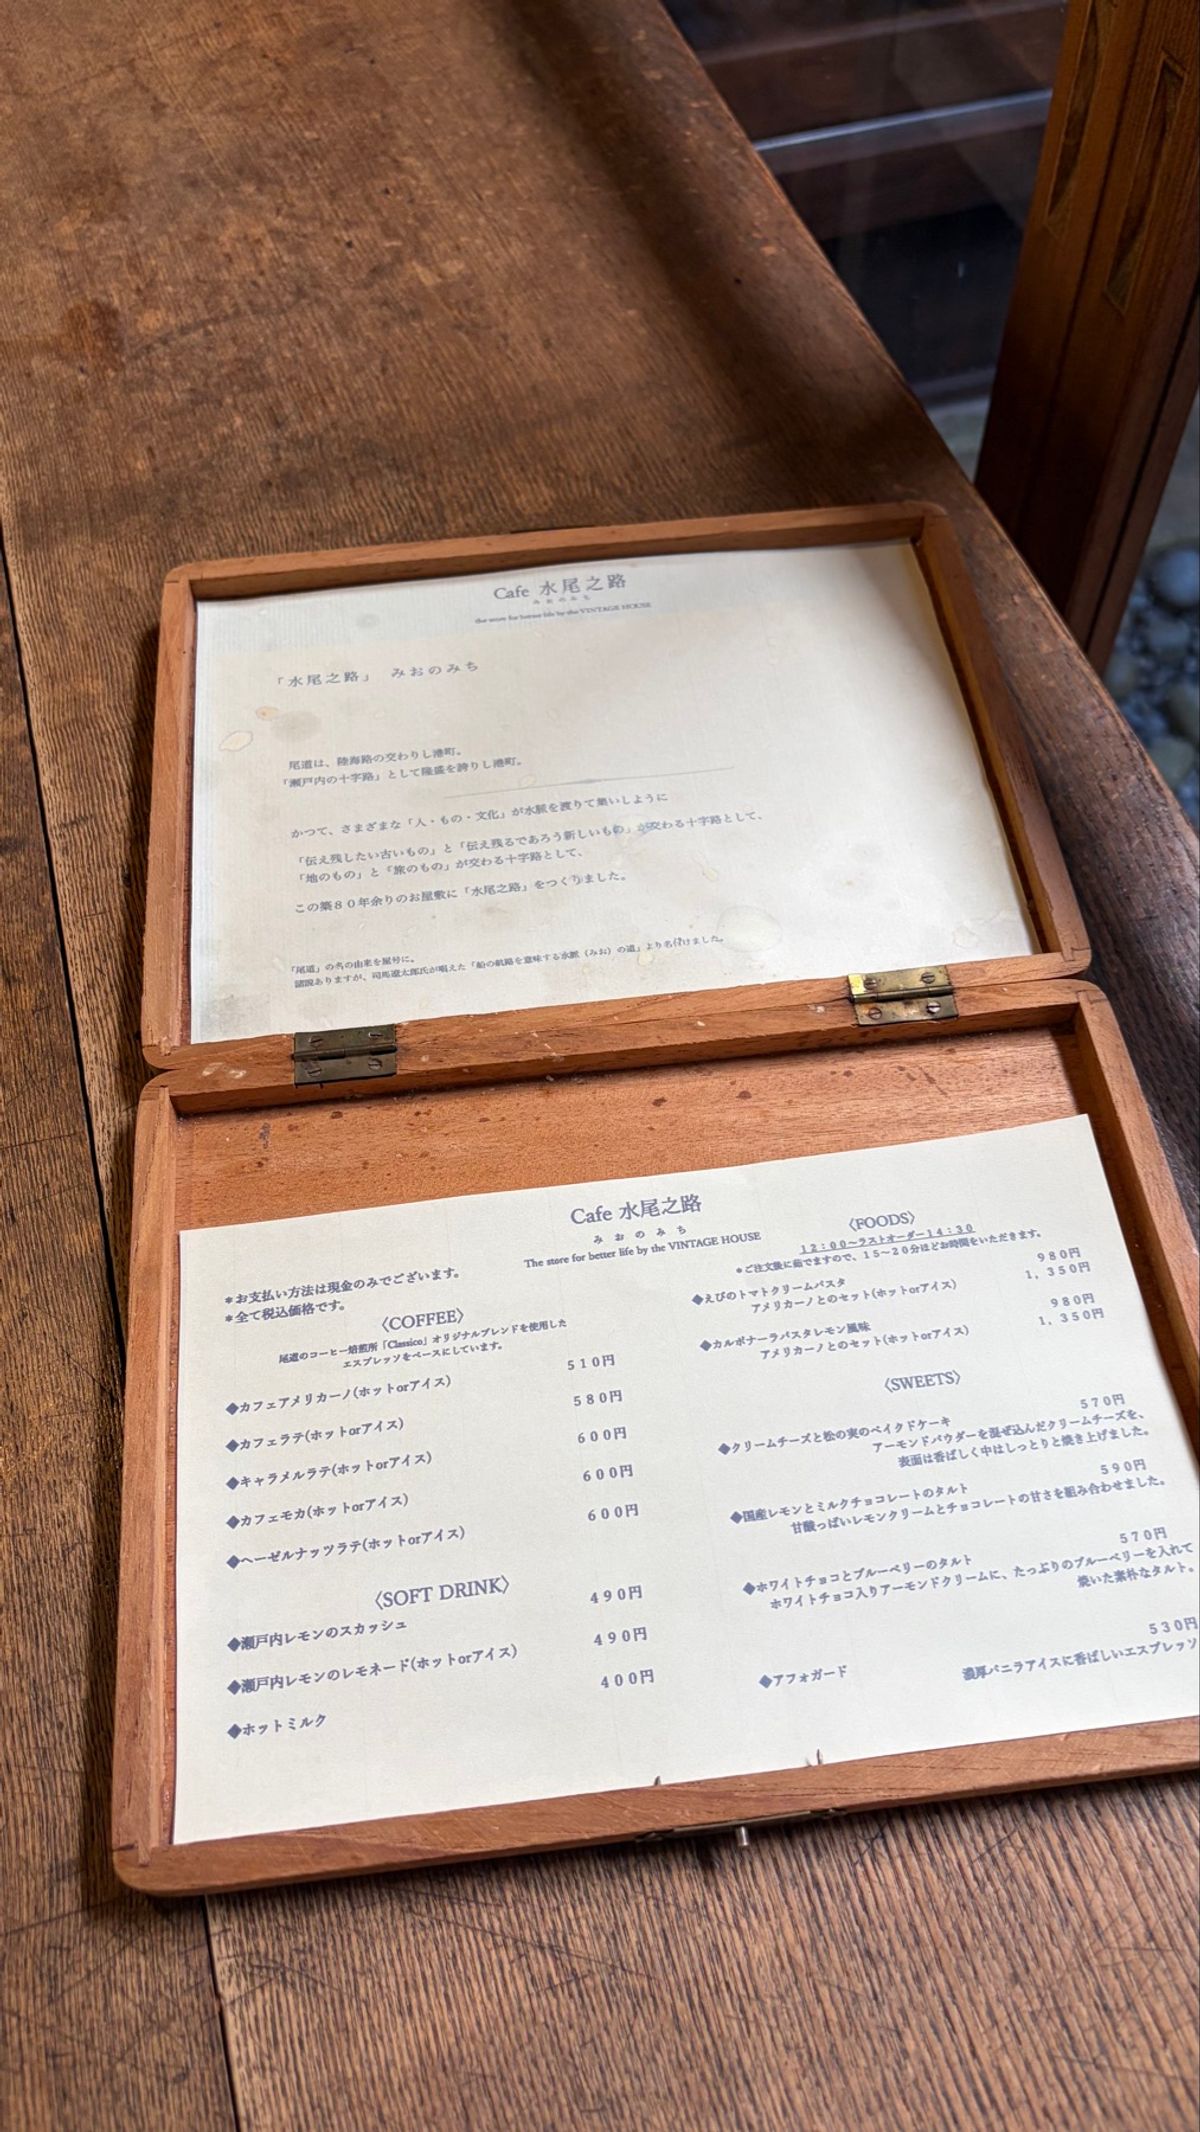 Cafe 水尾之路
みおのみち
the store for better life by the VINTAGE HOUSE
「水尾之路」 みおのみち
尾道は、陸海路の交わりし港町。
「瀬戸内の十字路」として隆盛を誇りし港町。
かつて、さまざまな「人・もの・文化」が水脈を渡りて集いしように
「伝え残したい古いもの」と「伝え残るであろう新しいもの」が交わる十字路として、
「地のもの」と「旅のもの」が交わる十字路として、
この築80年余りのお屋敷に「水尾之路」をつくりました。
「尾道」の名の由来を屋号に。
諸説ありますが、司馬遼太郎氏が唱えた「船の航路を意味する水脈（みお）の道」より名付けました。
Cafe 水尾之路
みおのみち
The store for better life by the VINTAGE HOUSE
*お支払い方法は現金のみでございます。
*全て税込価格です。
〈COFFEE〉
尾道のコーヒー焙煎所「Classico」オリジナルブレンドを使用した
エスプレッソをベースにしています。
◆カフェアメリカーノ(ホットorアイス) 510円
◆カフェラテ(ホットorアイス) 580円
◆キャラメルラテ(ホットorアイス) 600円
◆カフェモカ(ホットorアイス) 600円
◆ヘーゼルナッツラテ(ホットorアイス) 600円
〈SOFT DRINK〉
◆瀬戸内レモンのスカッシュ 490円
◆瀬戸内レモンのレモネード(ホットorアイス) 490円
◆ホットミルク 400円
〈FOODS〉
12:00〜ラストオーダー14:30
*ご注文後に茹でますので、15〜20分ほどお時間をいただきます。
◆えびのトマトクリームパスタ 980円
アメリカーノとのセット(ホットorアイス) 1,350円
◆カルボナーラパスタレモン風味 980円
アメリカーノとのセット(ホットorアイス) 1,350円
〈SWEETS〉
◆クリームチーズと松の実のベイクドケーキ 570円
アーモンドパウダーを混ぜ込んだクリームチーズを、
表面は香ばしく中はしっとりと焼き上げました。
◆国産レモンとミルクチョコレートのタルト 590円
甘酸っぱいレモンクリームとチョコレートの甘さを組み合わせました。
◆ホワイトチョコとブルーベリーのタルト 570円
ホワイトチョコ入りアーモンドクリームに、たっぷりのブルーベリーを入れて
焼いた素朴なタルト。
◆アフォガード 530円
濃厚バニラアイスに香ばしいエスプレッソ